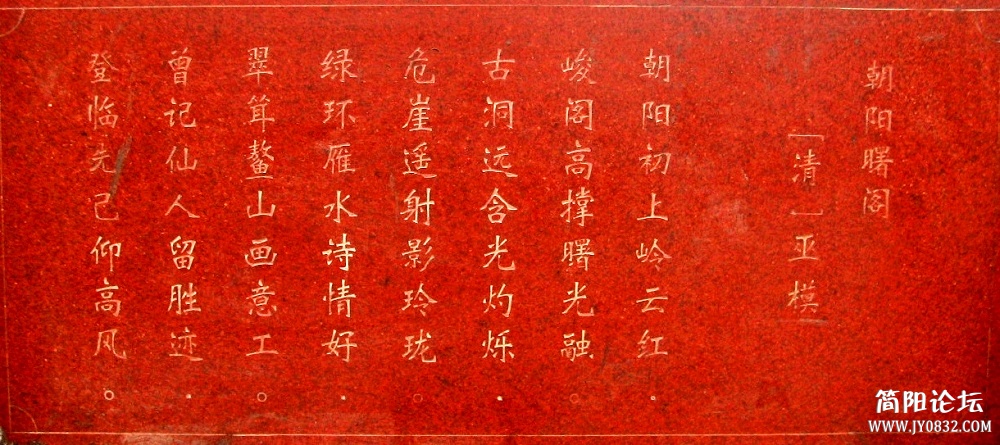 朝阳曙阁
［清］巫模
朝阳初上岭云红．
峻阁高撑曙光融。
古洞远含光灼烁．
危崖遥射影玲珑。
绿环雁水诗情好．
翠耸鳌山画意工。
曾记仙人留胜迹．
登临先己仰高风。
简阳论坛
www.JY0832.com